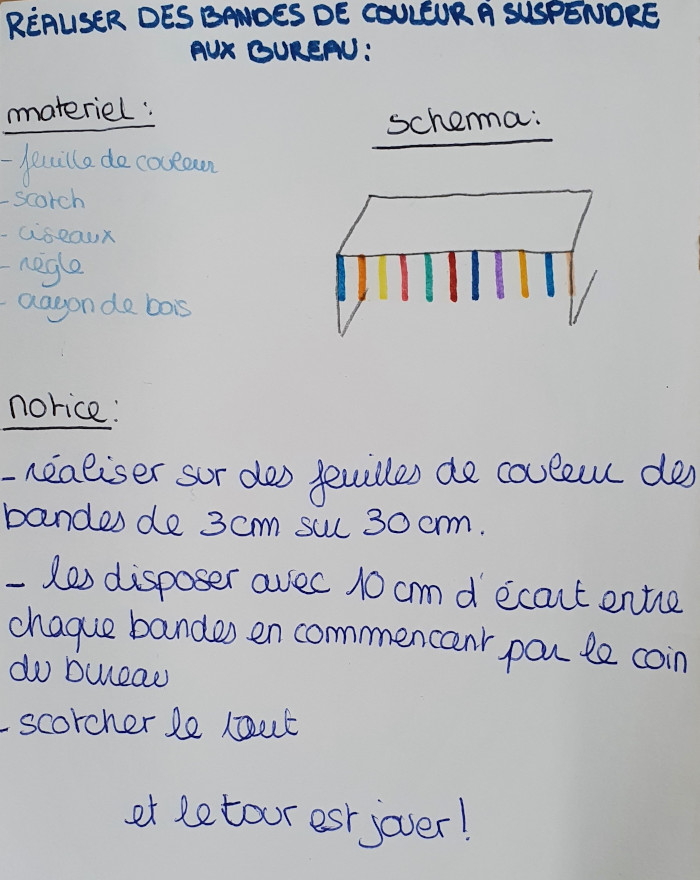 RÉALISER DES BANDES DE COULEUR À SUSPENDRE
AUX BUREAU:
materiel:
schema:
- feuille de couleur
- scotch
- ciseaux
- règle
- crayon de bois
notice:
- réaliser sur des feuilles de couleur des
bandes de 3cm sur 30 cm.
- les disposer avec 10 cm d'écart entre
chaque bandes en commencant par le coin
du bureau
- scotcher le tout
et le tour est jouer!